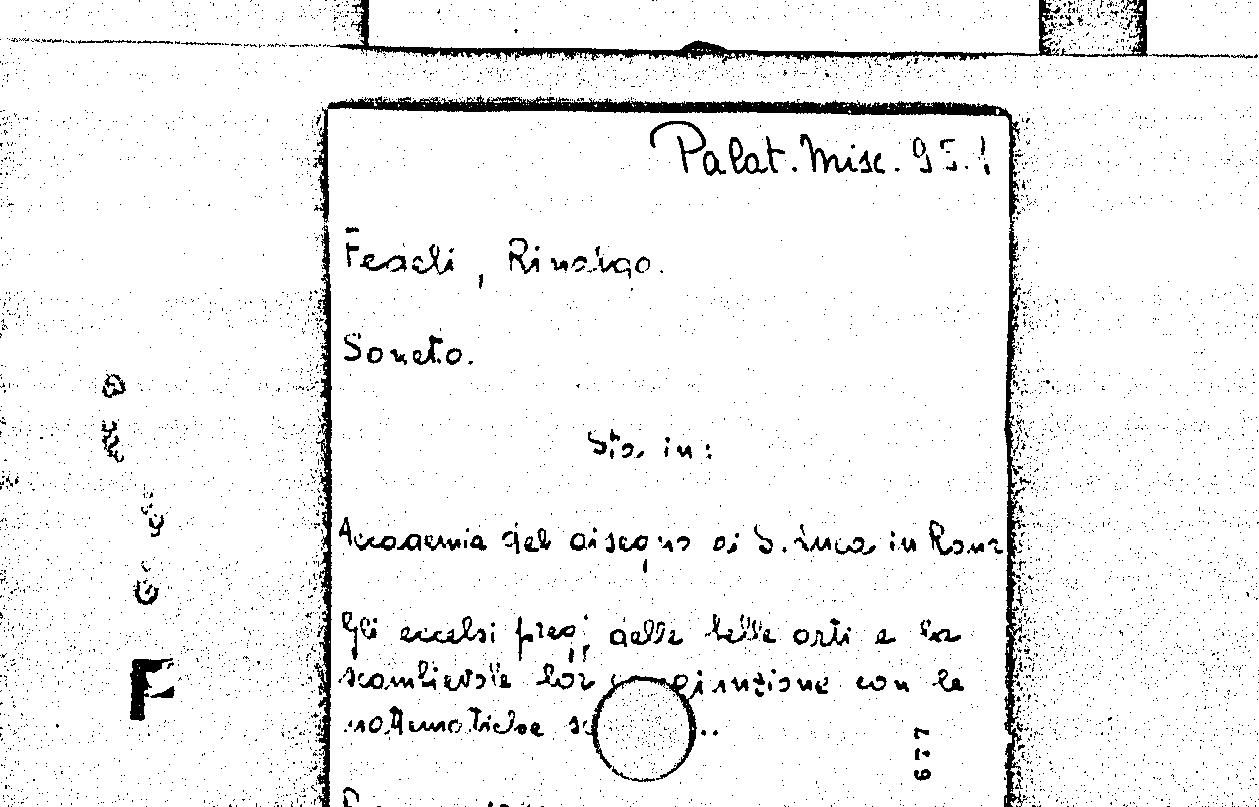 Palat. Misc. 95.1
Rinaldo.
Sonetto.
Sta in:
Accademia del disegno di S. Luca in Roma
Gli eccelsi pregj delle belle arti e la
scambievole lor congiunzione con le
mattematiche
677
F